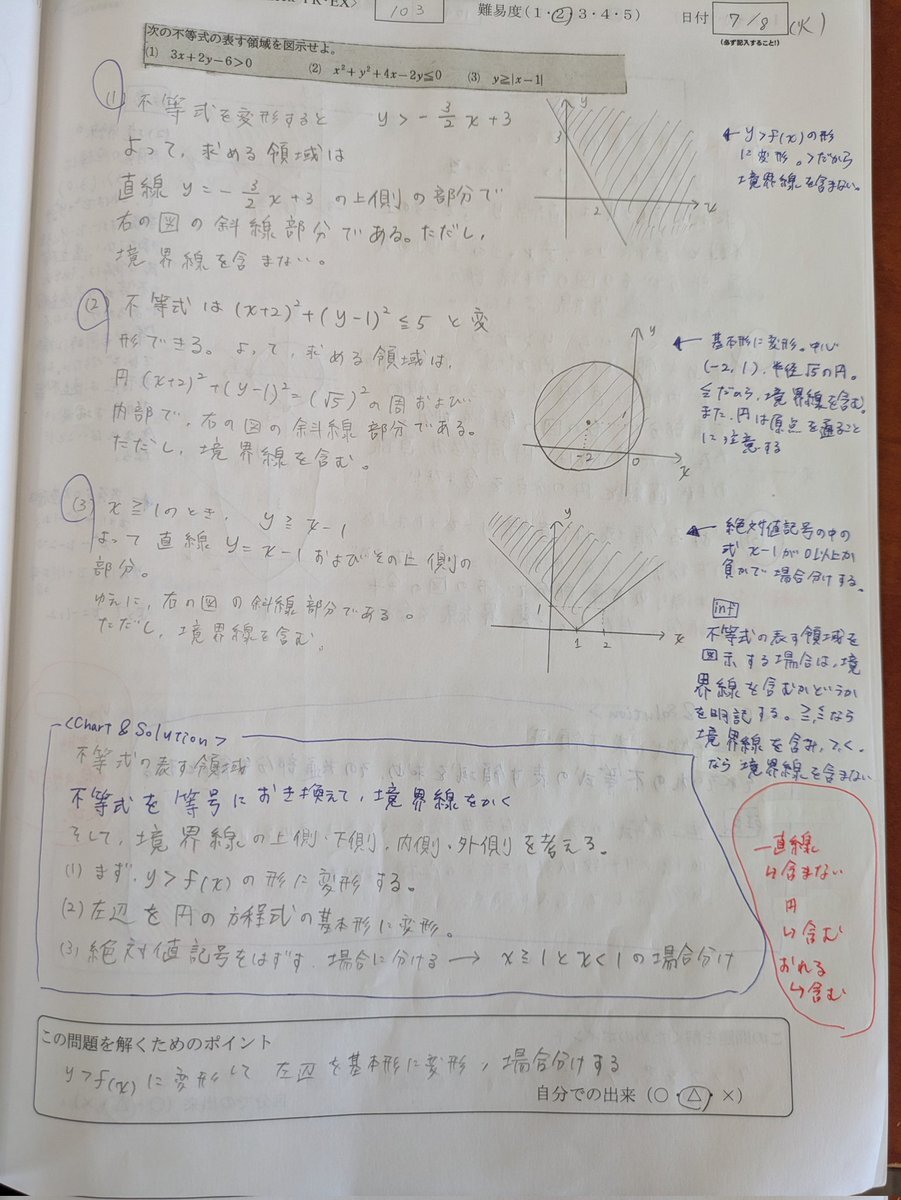 103
難易度(1・2・3・4・5)
日付 7/8 (火)
(必ず記入すること!)
次の不等式の表す領域を図示せよ。
(1) 3x+2y-6>0 (2) x²+y²+4x-2y≦0 (3) y≧|x-1|
(1) 不等式を変形すると y > -3/2 x + 3
よって、求める領域は
直線 y = -3/2 x + 3 の上側の部分で
右の図の斜線部分である。ただし、
境界線を含まない。
y
3
2
x
← y>f(x)の形
に変形。>だから
境界線を含まない。
(2) 不等式は (x+2)²+(y-1)²≦5 と変
形できる。よって、求める領域は、
円 (x+2)²+(y-1)²=(√5)² の周および
内部で、右の図の斜線部分である。
ただし、境界線を含む。
y
1
-2
0
x
← 基本形に変形。中心
(-2, 1), 半径√5の円。
≦だから、境界線を含む。
また、円は原点を通ること
に注意する
(3) x≧1のとき, y≧x-1
よって直線 y=x-1 およびその上側の
部分。
ゆえに、右の図の斜線部分である。
ただし、境界線を含む。
y
1
1 2
x
← 絶対値記号の中の
式 x-1が0以上か
負かで場合分けする。
inf
不等式の表す領域を
図示する場合は、境
界線を含むかどうか
を明記する。≧,≦なら
境界線を含み, >,<
なら境界線を含まない
<Chart & Solution>
不等式の表す領域
不等式を等号におき換えて、境界線をかく
そして、境界線の上側・下側、内側・外側を考える。
(1) まず、y>f(x)の形に変形する。
(2) 左辺を円の方程式の基本形に変形。
(3) 絶対値記号をはずす 場合に分ける → x≧1とx<1の場合分け
直線
↳含まない
円
↳含む
おれる
↳含む
この問題を解くためのポイント
y>f(x)に変形して 左辺を基本形に変形, 場合分けする
自分での出来(○・△・×)